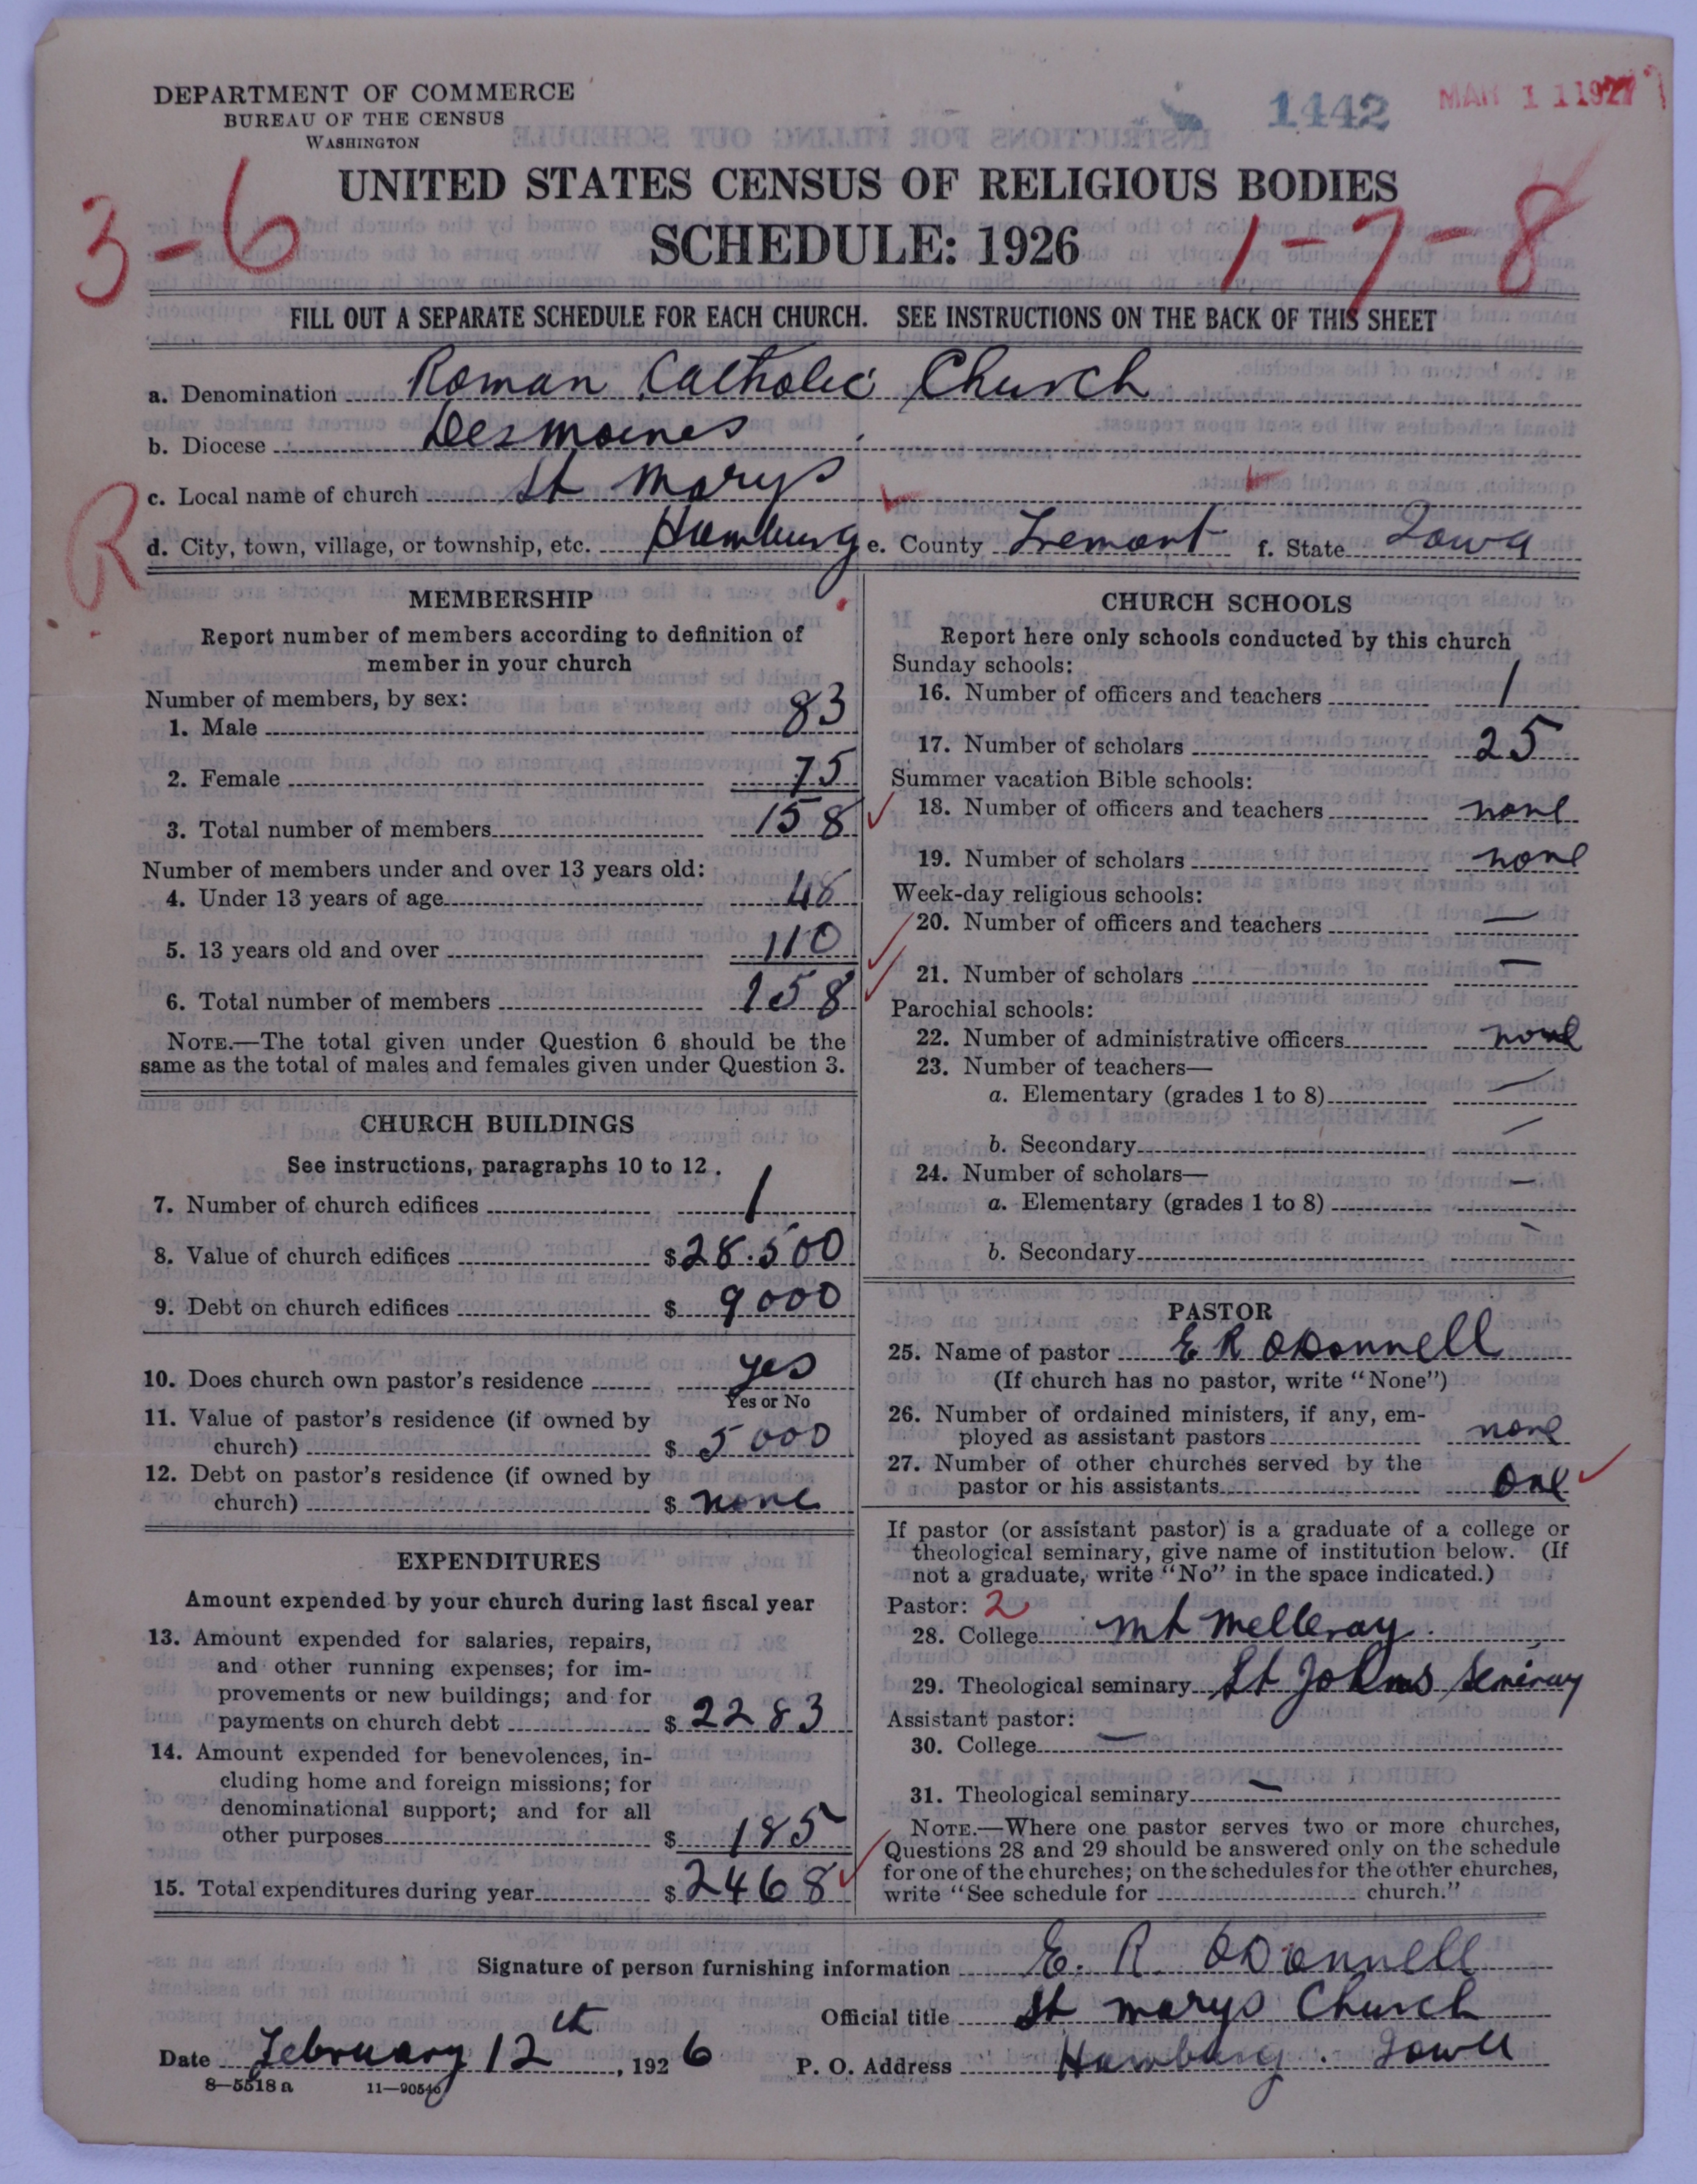 DEPARTMENT OF COMMERCE
BUREAU OF THE CENSUS
WASHINGTON
1442
MAR 11 1927
UNITED STATES CENSUS OF RELIGIOUS BODIES
SCHEDULE: 1926
3-6
1-7-8
FILL OUT A SEPARATE SCHEDULE FOR EACH CHURCH. SEE INSTRUCTIONS ON THE BACK OF THIS SHEET
a. Denomination Roman Catholic Church
b. Diocese Desmoines
c. Local name of church St Marys
R
d. City, town, village, or township, etc. Hamburg e. County Fremont f. State Iowa
MEMBERSHIP
Report number of members according to definition of
member in your church
Number of members, by sex:
1. Male 83
2. Female 75
3. Total number of members 158
Number of members under and over 13 years old:
4. Under 13 years of age 48
5. 13 years old and over 110
6. Total number of members 158
NOTE.—The total given under Question 6 should be the
same as the total of males and females given under Question 3.
CHURCH BUILDINGS
See instructions, paragraphs 10 to 12.
7. Number of church edifices 1
8. Value of church edifices $28.500
9. Debt on church edifices $ 9000
10. Does church own pastor's residence yes
Yes or No
11. Value of pastor's residence (if owned by
church) $ 5000
12. Debt on pastor's residence (if owned by
church) $ none
EXPENDITURES
Amount expended by your church during last fiscal year
13. Amount expended for salaries, repairs,
and other running expenses; for im-
provements or new buildings; and for
payments on church debt $ 2283
14. Amount expended for benevolences, in-
cluding home and foreign missions; for
denominational support; and for all
other purposes $ 185
15. Total expenditures during year $ 2468
CHURCH SCHOOLS
Report here only schools conducted by this church
Sunday schools:
16. Number of officers and teachers 1
17. Number of scholars 25
Summer vacation Bible schools:
18. Number of officers and teachers none
19. Number of scholars none
Week-day religious schools:
20. Number of officers and teachers —
21. Number of scholars —
Parochial schools:
22. Number of administrative officers none
23. Number of teachers—
a. Elementary (grades 1 to 8) —
b. Secondary —
24. Number of scholars—
a. Elementary (grades 1 to 8) —
b. Secondary —
PASTOR
25. Name of pastor E R ODonnell
(If church has no pastor, write "None")
26. Number of ordained ministers, if any, em-
ployed as assistant pastors none
27. Number of other churches served by the
pastor or his assistants One
If pastor (or assistant pastor) is a graduate of a college or
theological seminary, give name of institution below. (If
not a graduate, write "No" in the space indicated.)
Pastor: 2
28. College Mt Melleray.
29. Theological seminary St Johns Seminary
Assistant pastor:
30. College —
31. Theological seminary —
NOTE.—Where one pastor serves two or more churches,
Questions 28 and 29 should be answered only on the schedule
for one of the churches; on the schedules for the other churches,
write "See schedule for church."
Signature of person furnishing information E. R. ODonnell
Official title St Marys Church
Date February 12th, 1926 P. O. Address Hamburg. Iowa
8—5518 a 11—90546